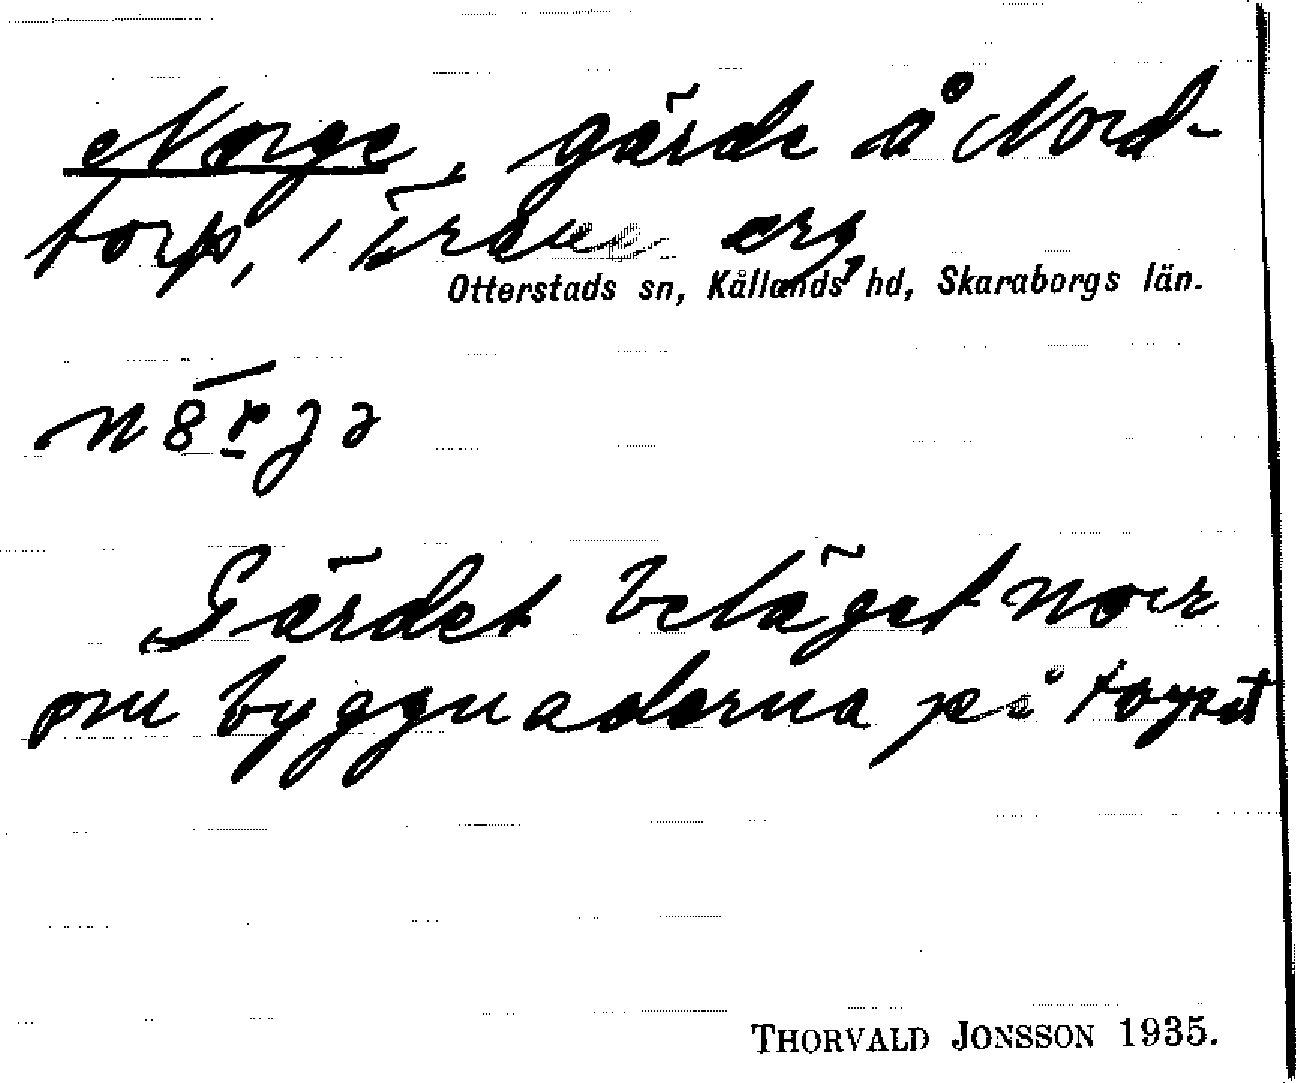 Norge, gärde å Nord-
torp,
Otterstads sn, Kållands hd, Skaraborgs län.
n8rja
Gärdet beläget norr
om byggnaderna på torpet
THORVALD JONSSON 1935.